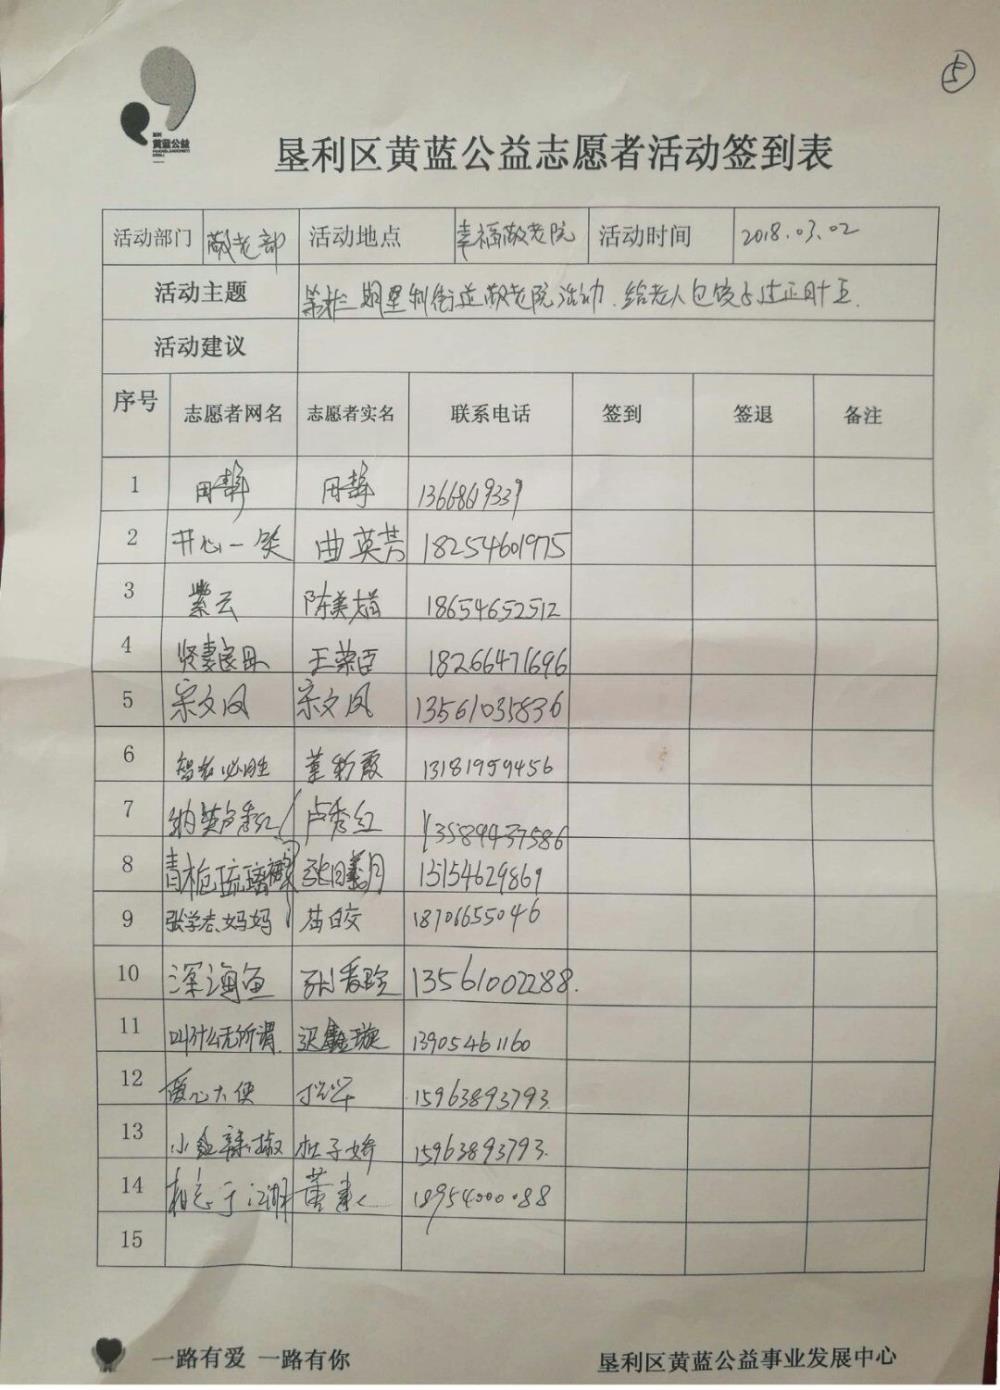 5
黄蓝公益
垦利区黄蓝公益志愿者活动签到表
活动部门 敬老部 活动地点 幸福敬老院 活动时间 2018.03.02
活动主题 期垦利街道敬老院活动.给老人包饺子过正月十五.
活动建议
序号 志愿者网名 志愿者实名 联系电话 签到 签退 备注
1 田静 田静 13668619339
2 开心一笑 曲英芳 18254601975
3 紫云 陈美 18654652512
4 贤妻良母 王荣臣 18266471696
5 宋文凤 宋文凤 13561035836
6 智者必胜 董彩霞 13181959456
7 卢秀红 卢秀红 13589437586
8 青栀琉璃 15154629869
9 张学志妈妈 苗皎 18706655046
10 深海鱼 13561002288.
11 叫什么无所谓 张鑫璇 13905461160
12 爱心大使 15963893793
13 小红辣椒 杜子娇 15963893793.
14 相忘于江湖 董 18954000088
15
一路有爱 一路有你
垦利区黄蓝公益事业发展中心